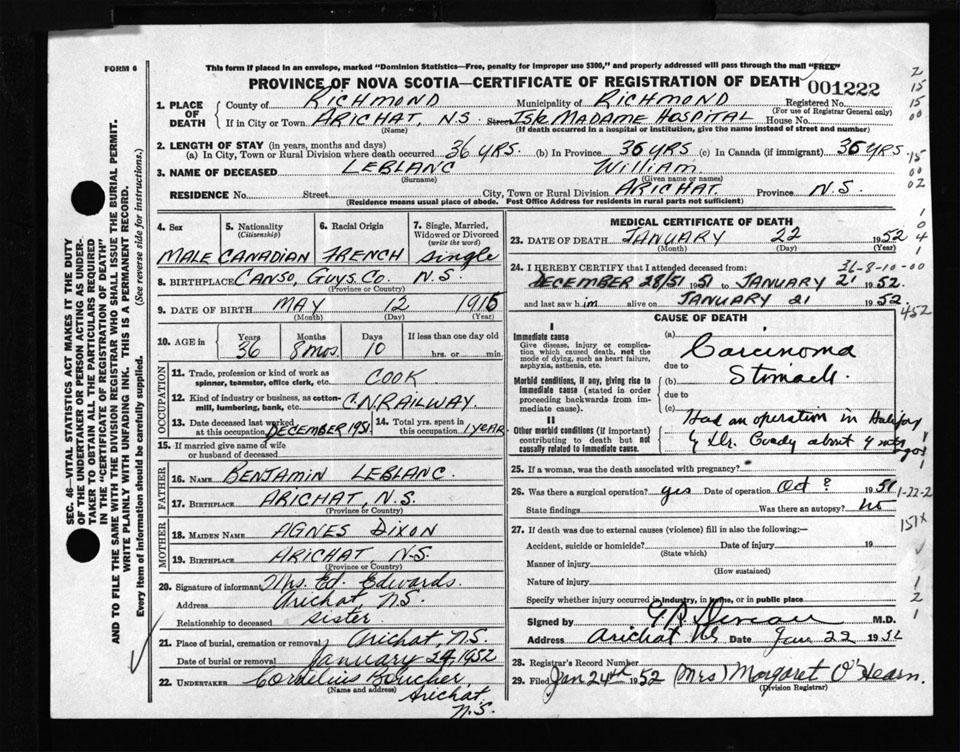 FORM 6
This form if placed in an envelope, marked "Dominion Statistics—Free, penalty for improper use $300," and properly addressed will pass through the mail "FREE"
PROVINCE OF NOVA SCOTIA—CERTIFICATE OF REGISTRATION OF DEATH 001222
1. PLACE OF DEATH County of RICHMOND Municipality of RICHMOND Registered No.
(For use of Registrar General only)
If in City or Town ARICHAT, N.S. Street ISLE MADAME HOSPITAL House No.
(Name) (If death occurred in a hospital or institution, give the name instead of street and number)
2. LENGTH OF STAY (in years, months and days)
(a) In City, Town or Rural Division where death occurred 36 YRS. (b) In Province 36 YRS (c) In Canada (if immigrant) 36 YRS.
3. NAME OF DECEASED LEBLANC William
(Surname) (Given name or names)
RESIDENCE No. Street City, Town or Rural Division ARICHAT. Province N.S.
(Residence means usual place of abode. Post Office Address for residents in rural parts not sufficient)
4. Sex 5. Nationality (Citizenship) 6. Racial Origin 7. Single, Married, Widowed or Divorced (write the word)
MALE CANADIAN FRENCH Single
8. BIRTHPLACE CANSO, GUYS. CO. N.S.
(Province or Country)
9. DATE OF BIRTH MAY 12 1915
(Month) (Day) (Year)
10. AGE Years Months Days If less than one day
36 8 mos. 10 hrs. or min.
OCCUPATION
11. Trade, profession or kind of work as spinner, teamster, office clerk, etc. COOK
12. Kind of industry or business, as cotton-mill, lumbering, bank, etc. C.N. RAILWAY.
13. Date deceased last worked at this occupation DECEMBER 1951 14. Total yrs. spent in this occupation 1 year
15. If married give name of wife or husband of deceased
FATHER
16. NAME BENJAMIN LEBLANC.
17. BIRTHPLACE ARICHAT, N.S.
(Province or Country)
MOTHER
18. MAIDEN NAME AGNES DIXON
19. BIRTHPLACE ARICHAT N.S.
(Province or Country)
20. Signature of informant Mrs. Ed. Edwards.
Address Arichat, N.S.
Relationship to deceased sister.
21. Place of burial, cremation or removal Arichat, N.S.
Date of burial or removal January 24, 1952
22. UNDERTAKER Cornelius Boucher,
(Name and address) Arichat
N.S.
MEDICAL CERTIFICATE OF DEATH
23. DATE OF DEATH JANUARY 22 1952
(Month) (Day)
36-8-10-00
24. I HEREBY CERTIFY that I attended deceased from:
DECEMBER 28/51 1951 to JANUARY 21 1952.
and last saw him alive on JANUARY 21 1952.
452
CAUSE OF DEATH
I
Immediate cause
Give disease, injury or complication which caused death, not the mode of dying, such as heart failure, asphyxia, asthenia, etc.
(a) Carcinoma
due to
Morbid conditions, if any, giving rise to immediate cause (stated in order proceeding backwards from immediate cause).
(b) Stomach.
due to
(c)
II
Other morbid conditions (if important) contributing to death but not causally related to immediate cause.
Had an operation in Halifax
by Dr. about 4 mos
ago
25. If a woman, was the death associated with pregnancy?
26. Was there a surgical operation? yes Date of operation Oct ? 1951
1-22-2
State findings Was there an autopsy? no
151x
27. If death was due to external causes (violence) fill in also the following:—
Accident, suicide or homicide? Date of injury 19
(State which)
Manner of injury
(How sustained)
Nature of injury
Specify whether injury occurred in industry, in home, or in public place
Signed by M.D.
Address Arichat NS Date Jan 22 1952
28. Registrar's Record Number
29. Filed Jan 24th 1952 (Mrs) Margaret O'Hearn.
(Division Registrar)
SEC. 46—VITAL STATISTICS ACT MAKES IT THE DUTY
OF THE UNDERTAKER OR PERSON ACTING AS UNDERTAKER TO OBTAIN ALL THE PARTICULARS REQUIRED
IN THE "CERTIFICATE OF REGISTRATION OF DEATH"
AND TO FILE THE SAME WITH THE DIVISION REGISTRAR WHO SHALL ISSUE THE BURIAL PERMIT.
WRITE PLAINLY WITH UNFADING INK. THIS IS A PERMANENT RECORD.
Every item of information should be carefully supplied. (See reverse side for instructions.)